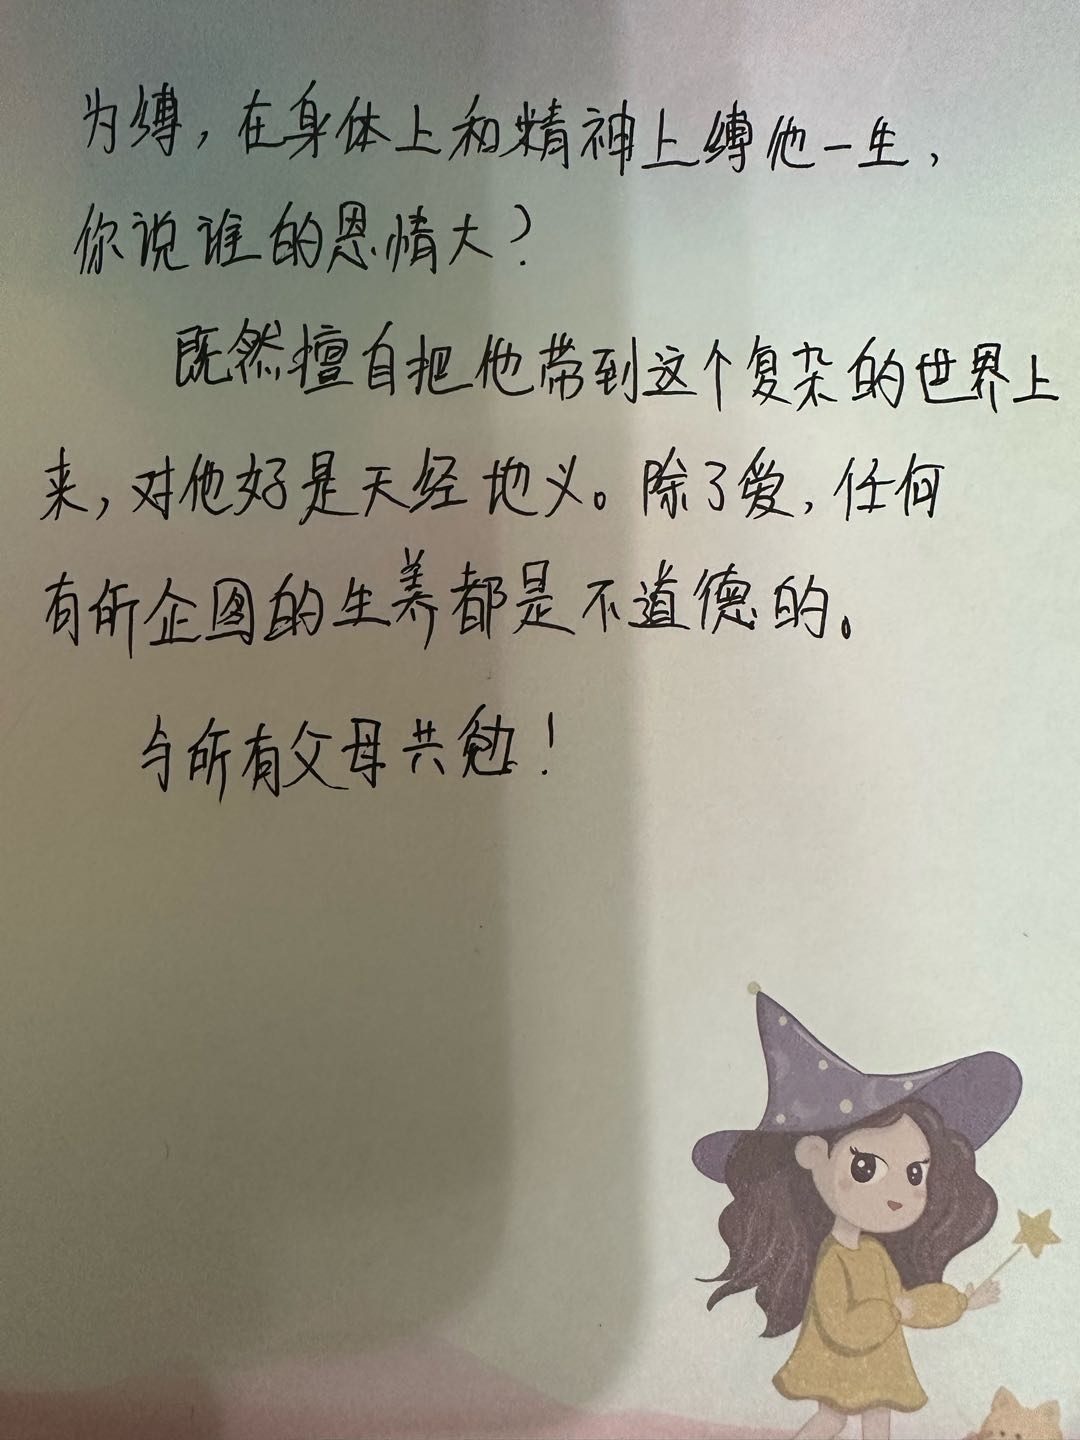 为缚，在身体上和精神上缚他一生，
你说谁的恩情大？
既然擅自把他带到这个复杂的世界上
来，对他好是天经地义。除了爱，任何
有所企图的生养都是不道德的。
与所有父母共勉！